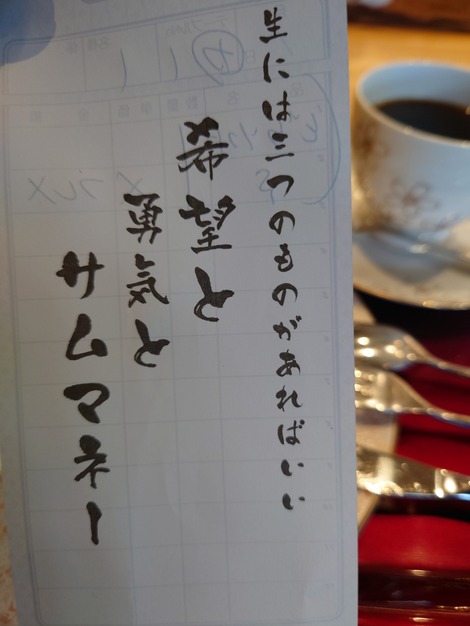 生には三つのものがあればいい
希望と
勇気と
サムマネー